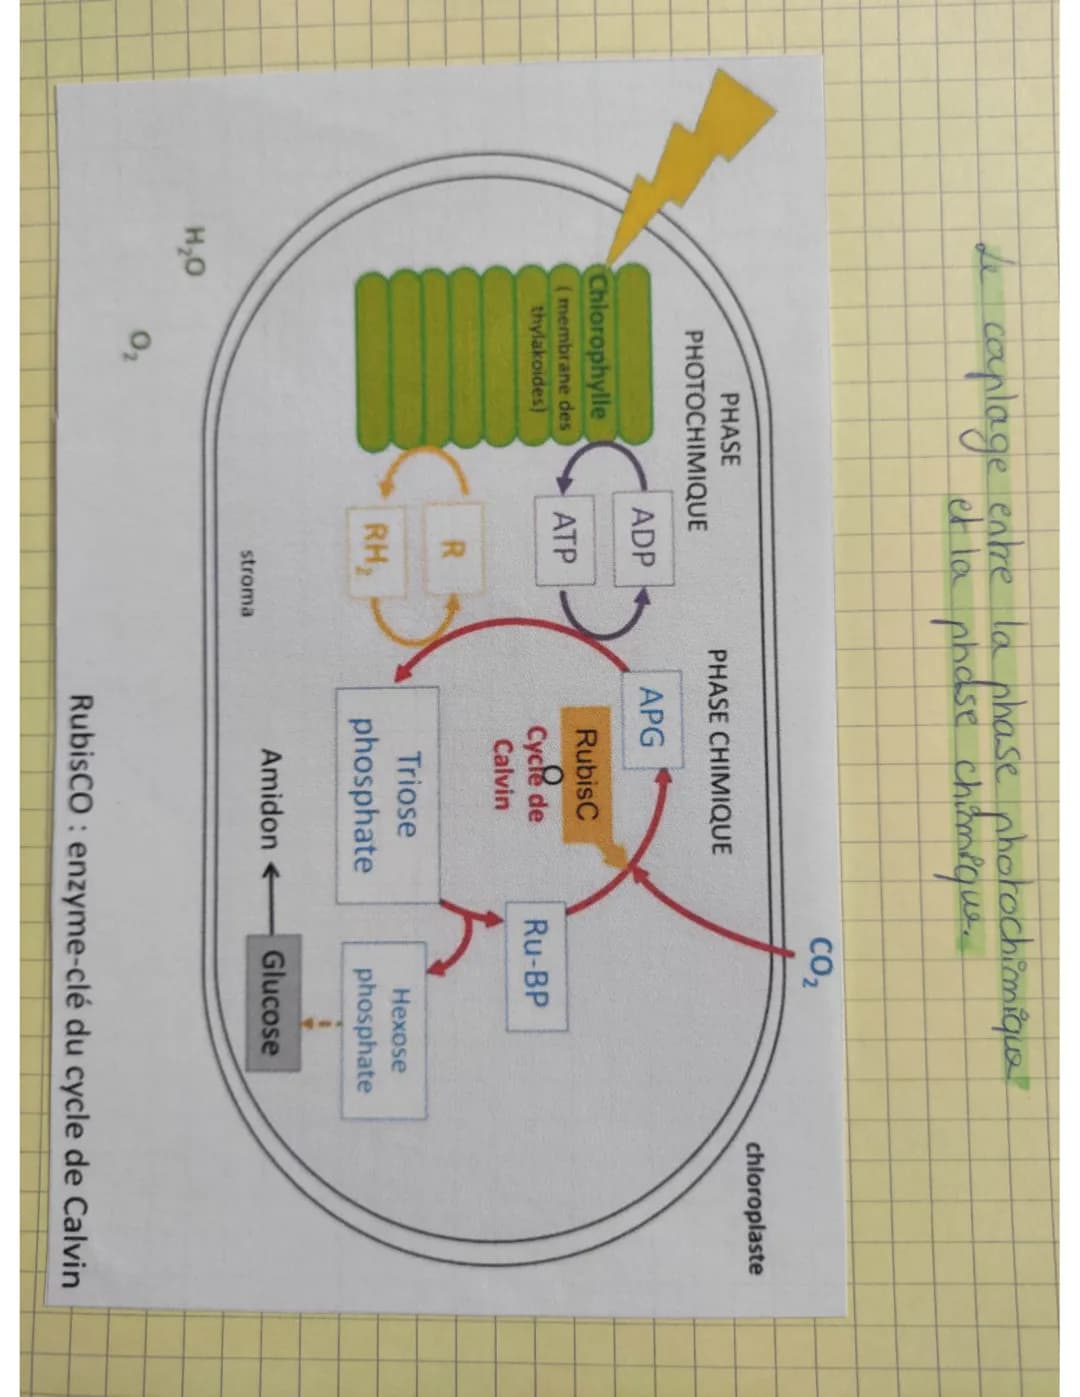 Le couplage entre la phase photochimique
et la phase chimique.
CO₂
chloroplaste
PHASE
PHOTOCHIMIQUE
PHASE CHIMIQUE
Chlorophylle
( membrane des
thylakoides)
ADP
ATP
R
RH₂
APG
RubisC
O
Cycle de
Calvin
Ru-BP
Triose
phosphate
Hexose
phosphate
stroma
Amidon
Glucose
H₂O
O₂
RubisCO : enzyme-clé du cycle de Calvin